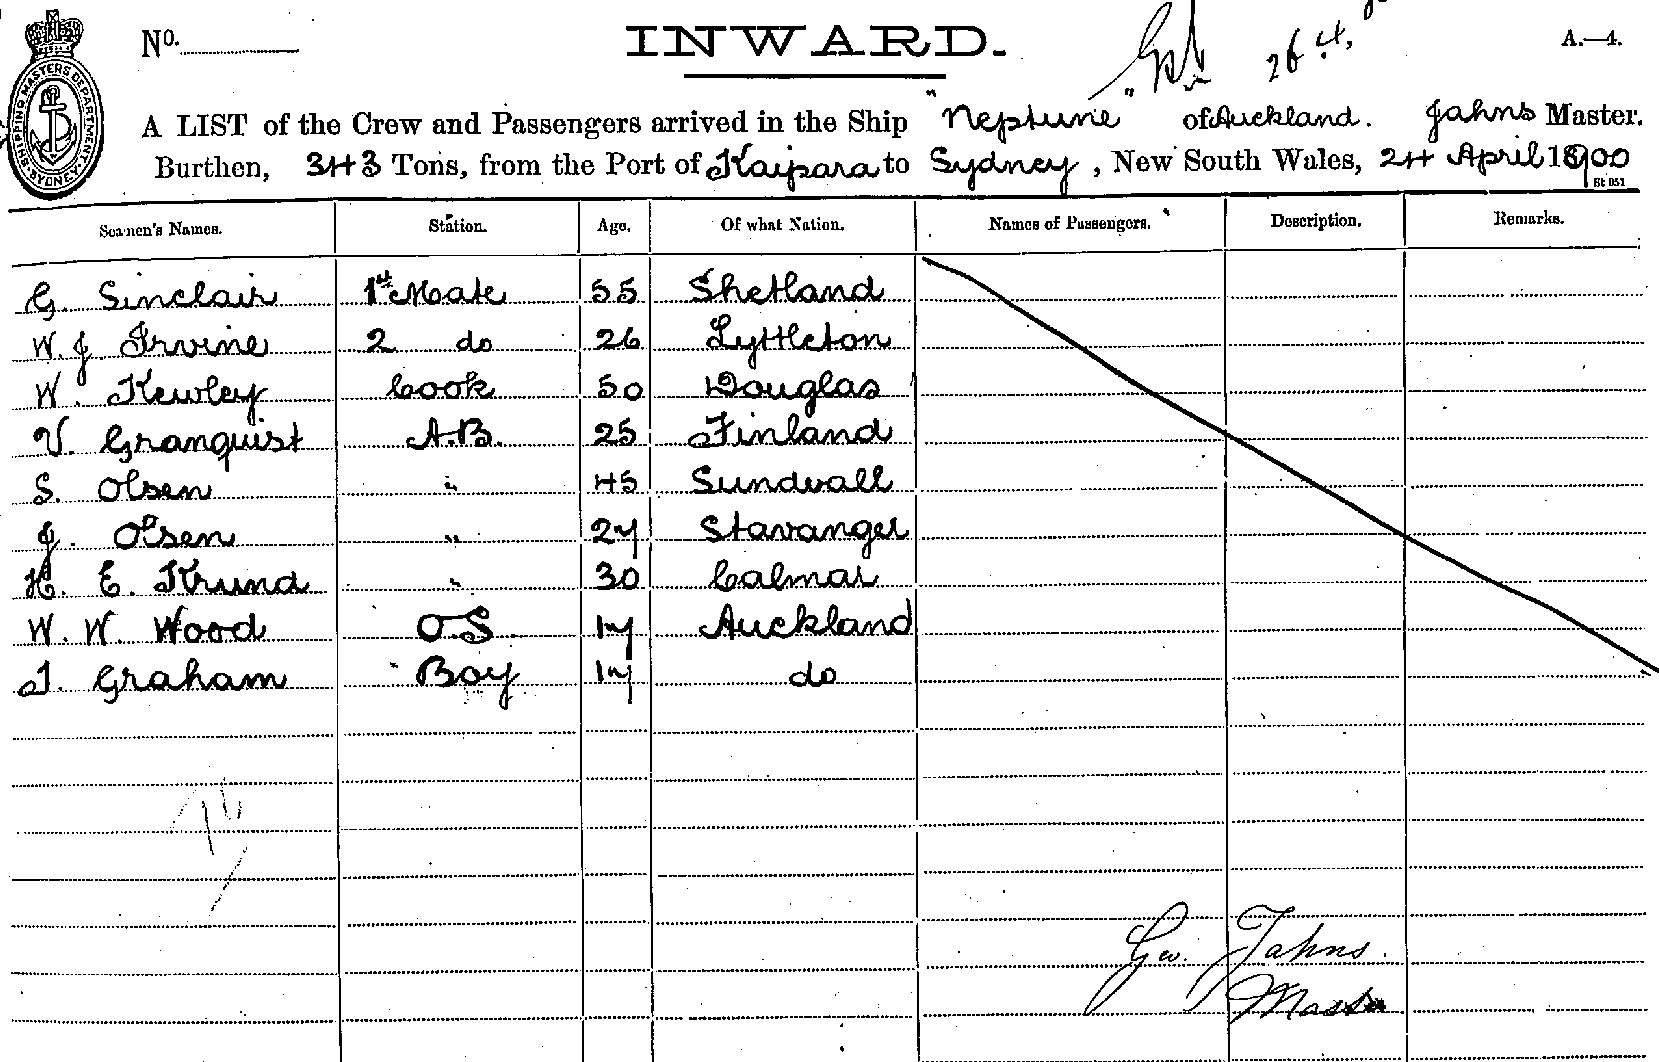 No. INWARD. 26 4. A.—4.
SHIPPING MASTERS DEPARTMENT SYDNEY
A LIST of the Crew and Passengers arrived in the Ship "Neptune" of Auckland. Jahns Master.
Burthen, 343 Tons, from the Port of Kaipara to Sydney, New South Wales, 24 April 1900
St 051
Seamen's Names. Station. Age. Of what Nation. Names of Passengers. Description. Remarks.
G. Sinclair 1st Mate 55 Shetland
W. J Irvine 2 do 26 Lyttleton
W. Kewley Cook 50 Douglas
V. Granquist A.B. 25 Finland
S. Olsen " 45 Sundvall
J. Olsen " 27 Stavanger
H. E. Krund " 30 Calmar
W. W. Wood O.S 17 Auckland
J. Graham Boy 17 do
Geo. Jahns.
Master